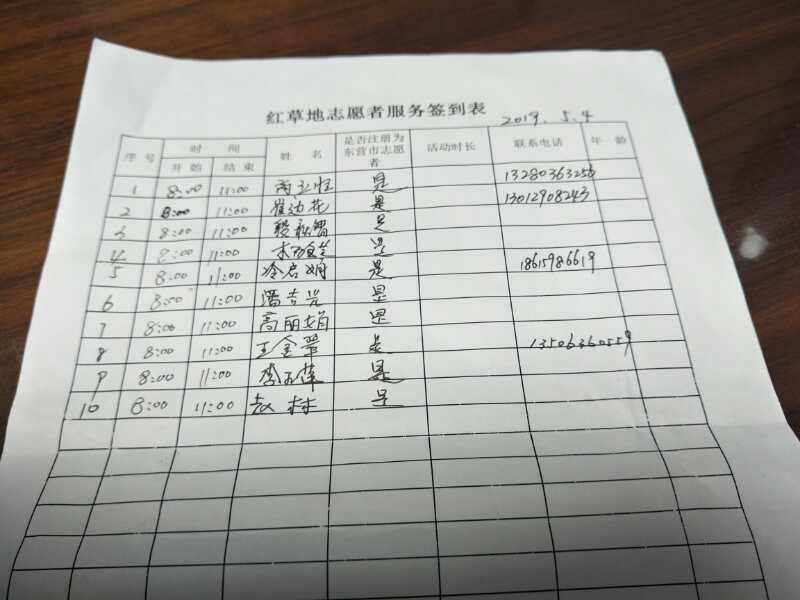 红草地志愿者服务签到表
2019.5.4
序号 时间 姓名 是否注册为东营市志愿者 活动时长 联系电话 年龄
开始 结束
1 8:00 11:00 是 13280363256
2 8:00 11:00 崔边花 是 13012908243
3 8:00 11:00 是
4 8:00 11:00 是
5 8:00 11:00 冷启娟 是 18615986619
6 8:00 11:00 潘吉芳 是
7 8:00 11:00 高丽娟 是
8 8:00 11:00 王金翠 是 13506360559
9 8:00 11:00 李玉萍 是
10 8:00 11:00 赵林 是